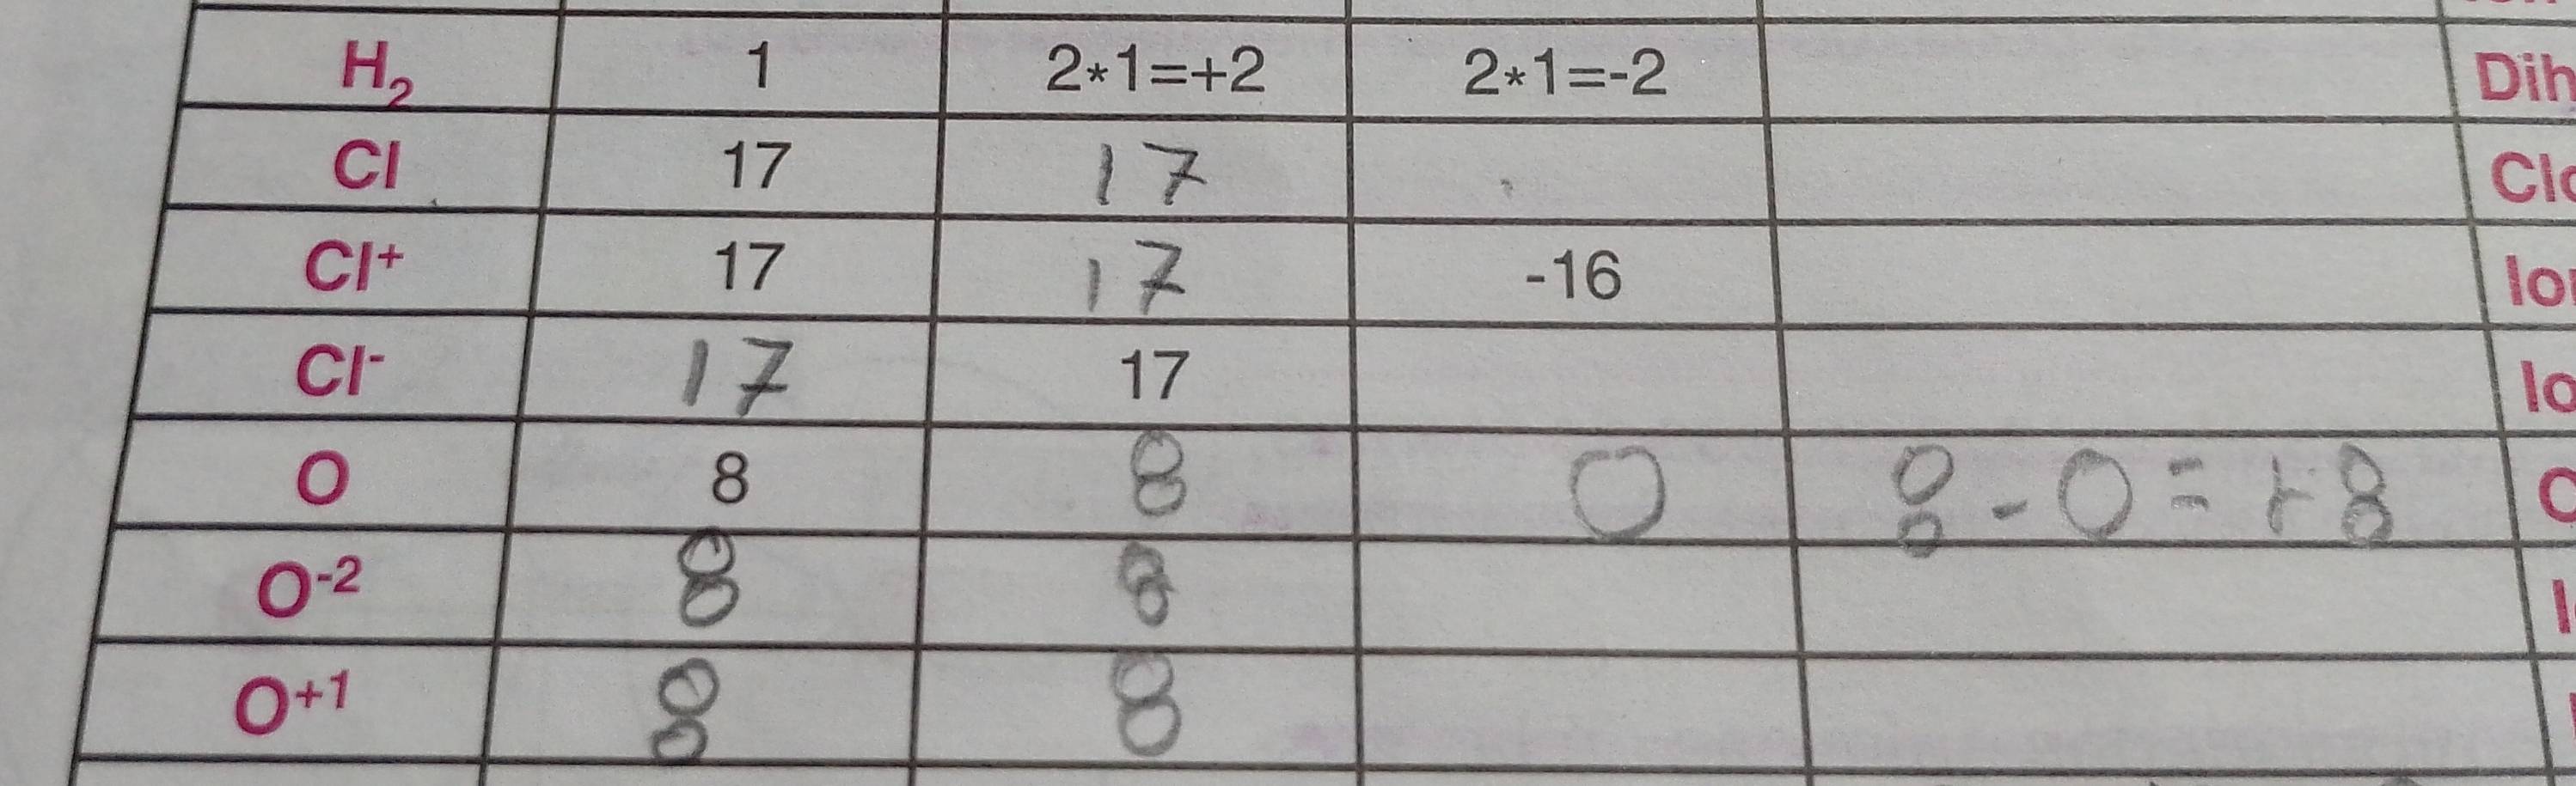 H₂ 1 2*1=+2 2*1=-2 Dih
Cl 17 17 Clo
Cl⁺ 17 17 -16 Ion
Cl⁻ 17 17 Io
O 8 8 0 8-0=+8 O
O⁻² 8 8 I
O⁺¹ 8 8